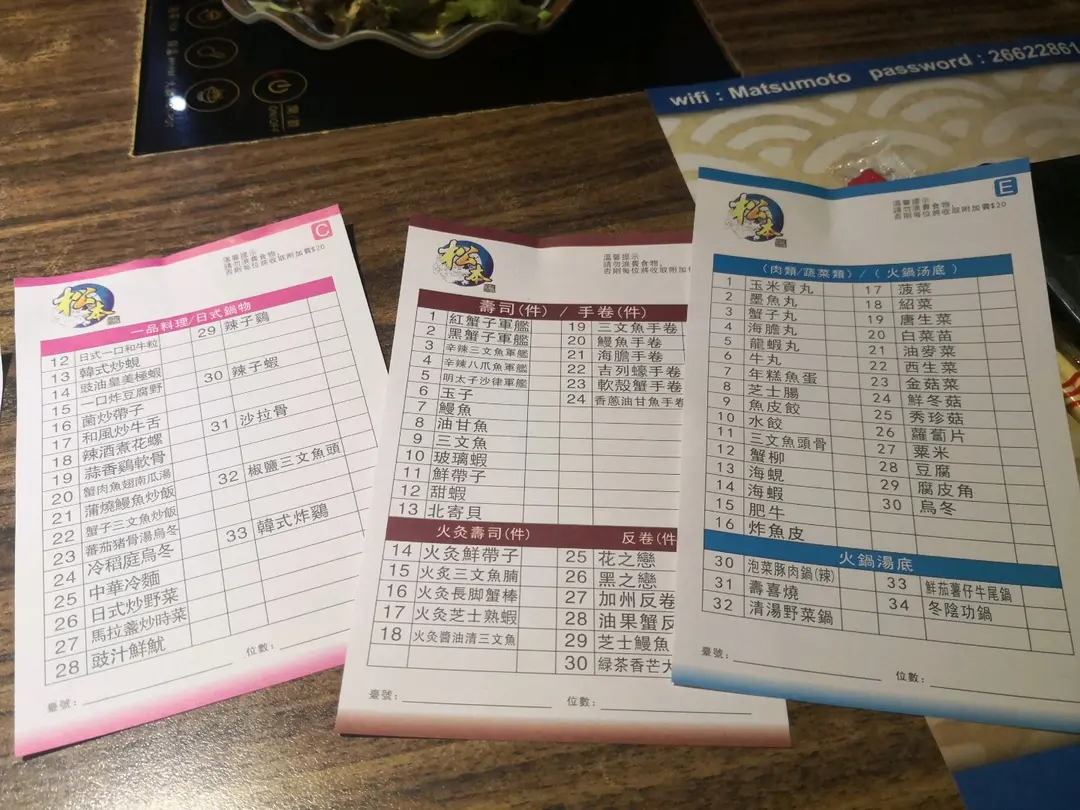 wifi : Matsumoto password : 26622861
C
松本
溫馨提示
請勿浪費食物,
否則每位將收取附加費$20
一品料理/日式鍋物
12 日式一口和牛粒 29 辣子鷄
13 韓式炒蜆
14 豉油皇美極蝦 30 辣子蝦
15 一口炸豆腐野
16 菌炒帶子 31 沙拉骨
17 和風炒牛舌
18 辣酒煮花螺 32 椒鹽三文魚頭
19 蒜香鷄軟骨
20 蟹肉魚翅南瓜湯 33 韓式炸鷄
21 蒲燒鰻魚炒飯
22 蟹子三文魚炒飯
23 蕃茄猪骨湯烏冬
24 冷稻庭烏冬
25 中華冷麵
26 日式炒野菜
27 馬拉盞炒時菜
28 豉汁鮮魷
臺號: 位數:
松本
溫馨提示
請勿浪費食物,
否則每位將收取附加
壽司(件) / 手卷(件)
1 紅蟹子軍艦 19 三文魚手卷
2 黑蟹子軍艦 20 鰻魚手卷
3 辛辣三文魚軍艦 21 海膽手卷
4 辛辣八爪魚軍艦 22 吉列蠔手卷
5 明太子沙律軍艦 23 軟殼蟹手卷
6 玉子 24 香蔥油甘魚手卷
7 鰻魚
8 油甘魚
9 三文魚
10 玻璃蝦
11 鮮帶子
12 甜蝦
13 北寄貝
火灸壽司(件) 反卷(件
14 火灸鮮帶子 25 花之戀
15 火灸三文魚腩 26 黑之戀
16 火灸長脚蟹棒 27 加州反卷
17 火灸芝士熟蝦 28 油果蟹反
18 火灸醬油清三文魚 29 芝士鰻魚
30 緑茶香芒
臺號: 位數:
E
松本
溫馨提示
請勿浪費食物,
否則每位將收取附加費$20
(肉類/蔬菜類)/(火鍋汤底)
1 玉米貢丸 17 菠菜
2 墨魚丸 18 紹菜
3 蟹子丸 19 唐生菜
4 海膽丸 20 白菜苗
5 龍蝦丸 21 油麥菜
6 牛丸 22 西生菜
7 年糕魚蛋 23 金菇菜
8 芝士腸 24 鮮冬菇
9 魚皮餃 25 秀珍菇
10 水餃 26 蘿蔔片
11 三文魚頭骨 27 粟米
12 蟹柳 28 豆腐
13 海蜆 29 腐皮角
14 海蝦 30 烏冬
15 肥牛
16 炸魚皮
火鍋湯底
30 泡菜豚肉鍋(辣) 33 鮮茄薯仔牛尾鍋
31 壽喜燒 34 冬陰功鍋
32 清湯野菜鍋
臺號: 位數: